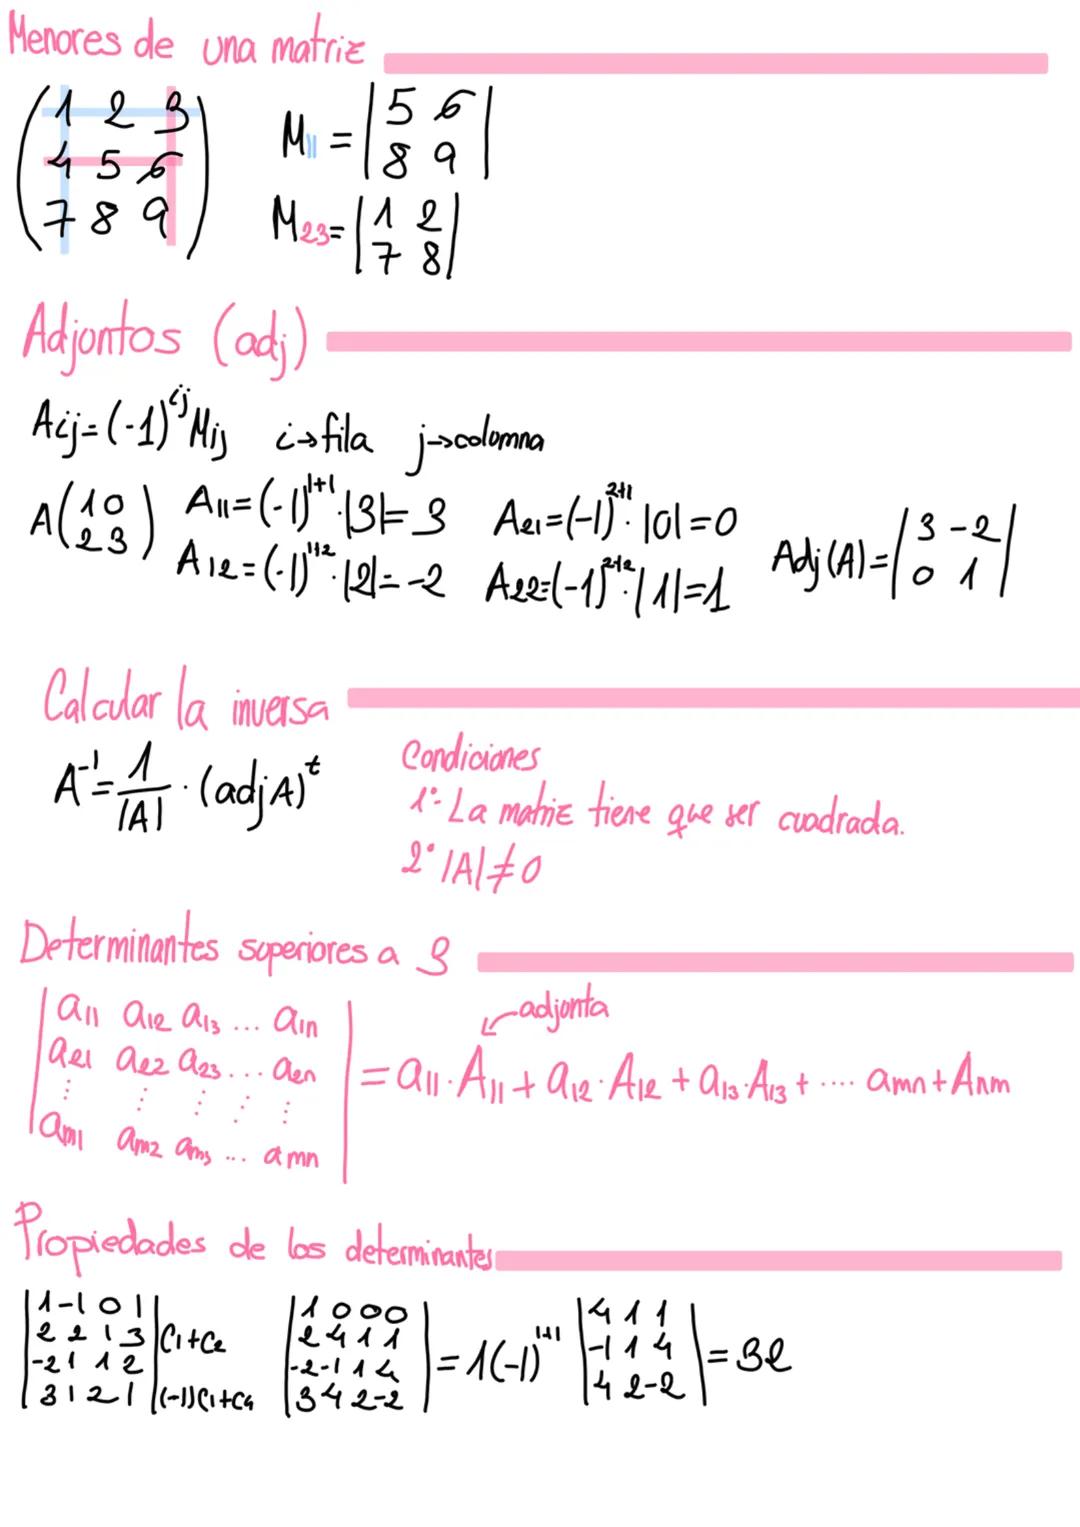 Menores de una matriz
1 2 3
4 5 6
7 8 9
M11 = |5 6|
|8 9|
M23= |1 2|
|7 8|
Adjontos (adj)
Aij=(-1)^ij Mij i→fila j→colomna
A(1 0
2 3)
A11=(-1)^1+1·|3|=3 A21=(-1)^2+1·|0|=0
A12=(-1)^1+2·|2|=-2 A22=(-1)^2+2·|1|=1
Adj(A)=|3 -2|
|0 1|
Calcular la inversa
A^-1=1/|A| · (adjA)^t
Condiciones
1°- La matriz tiene que ser cuadrada.
2° |A|≠0
Determinantes superiores a 3
a11 a12 a13 ... a1n
a21 a22 a23 ... a2n
⋮ ⋮ ⋮ ⋮ ⋮
am1 am2 am3 ... amn
adjonta
=a11·A11+a12·A12+a13·A13+.... amn+Anm
Propiedades de los determinantes
|1 -1 0 1|
|2 2 1 3| C1+C2
|-2 1 1 2|
|3 1 2 1| (-1)C1+C4
|1 0 0 0|
|2 4 1 1|
|-2 -1 1 4|
|3 4 2 -2|
=1(-1)^1+1
|4 1 1|
|-1 1 4|
|4 2 -2|
=32